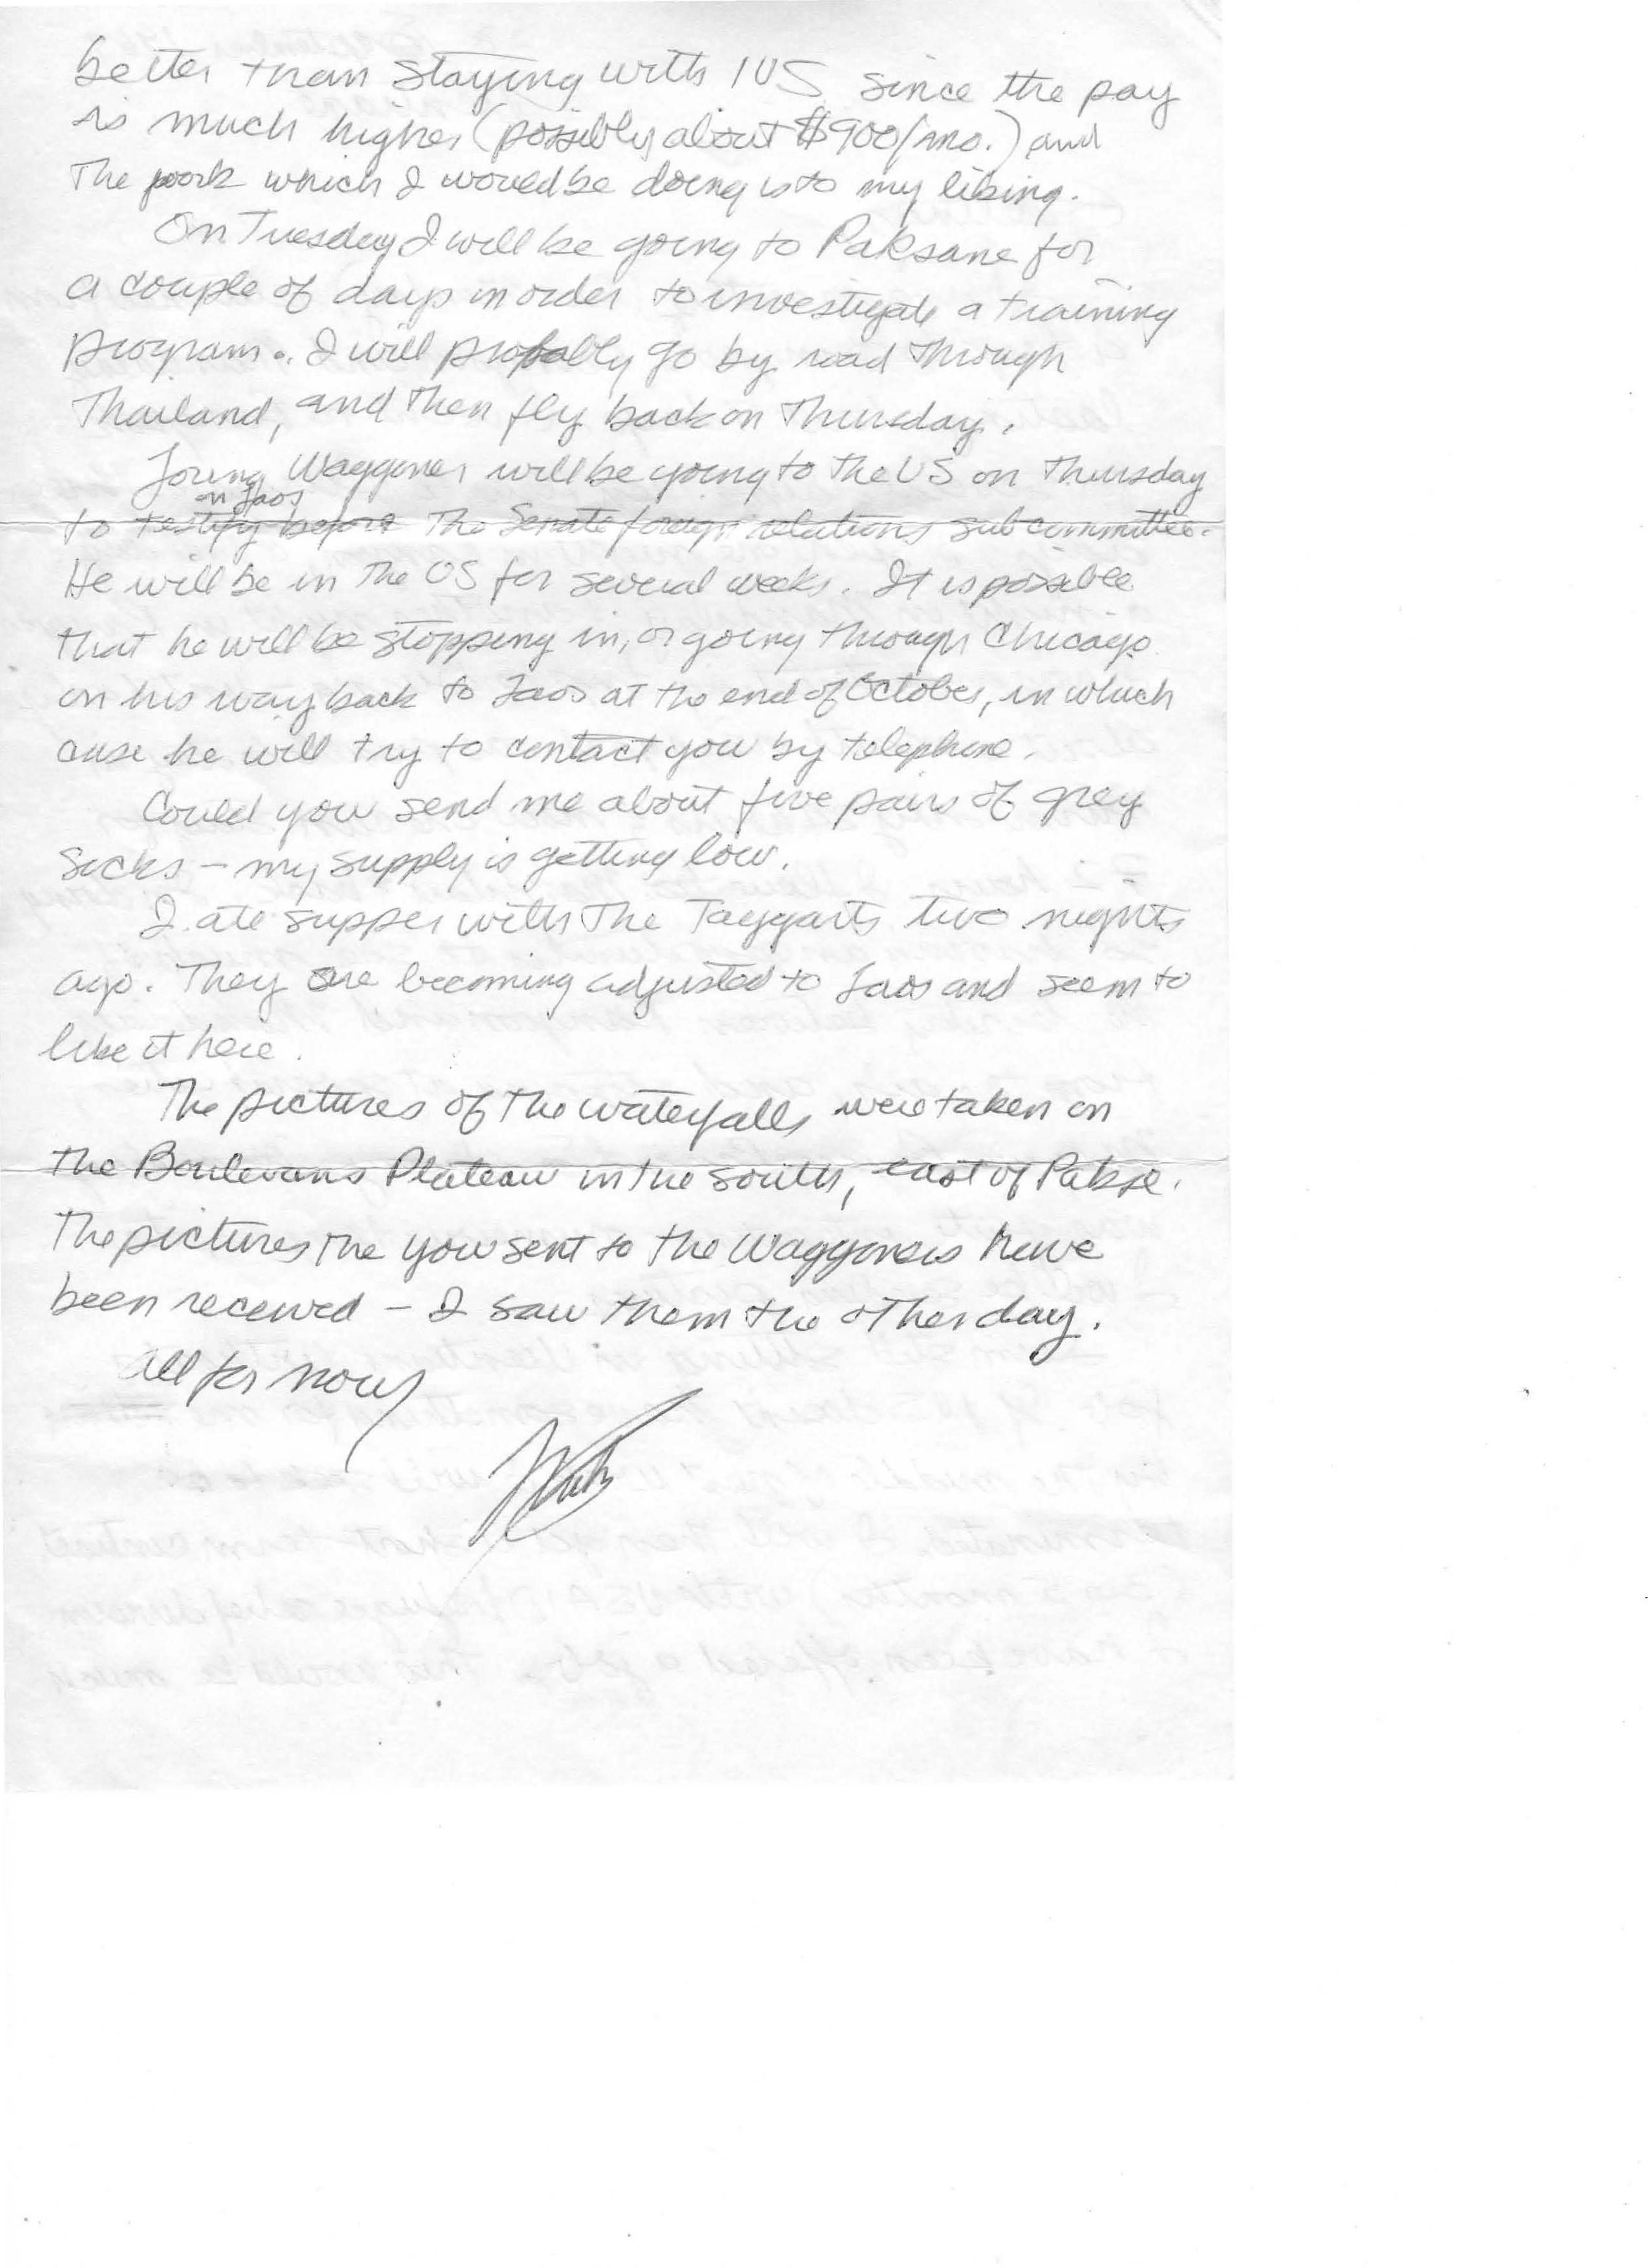 better than staying with IVS since the pay
is much higher (possibly about $900/mo.) and
the work which I would be doing is to my liking.
On Tuesday I will be going to Paksane for
a couple of days in order to investigate a training
program. I will probably go by road through
Thailand, and then fly back on Thursday.
Loring Waggoner will be going to the US on Thursday
on Laos
to testify before the Senate foreign relations subcommittee.
He will be in the US for several weeks. It is possible
that he will be stopping in, or going through Chicago
on his way back to Laos at the end of October, in which
case he will try to contact you by telephone.
Could you send me about five pairs of grey
socks – my supply is getting low.
I ate supper with the Taggarts two nights
ago. They are becoming adjusted to Laos and seem to
like it here.
The pictures of the waterfalls were taken on
the Boulevans Plateau in the south, east of Pakse.
The pictures the you sent to the Waggoners have
been received – I saw them the other day.
All for now,